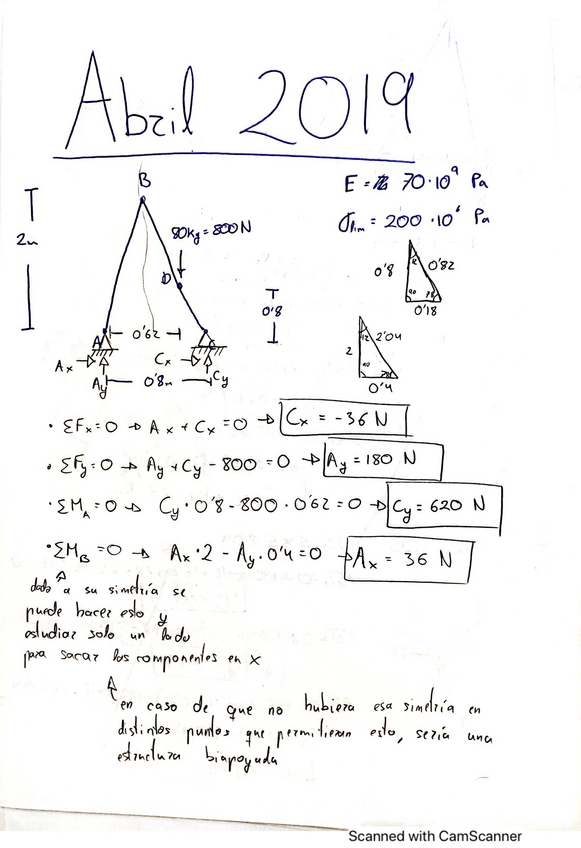 Abril 2019
B
E = 70·10⁹ Pa
σlim = 200·10⁶ Pa
2m
80kg = 800N
D
0'8
0'8
12
0'82
90
78
0'18
A
0'62
C
12
2'04
2
90
78
0'4
Ax
Cx
Ay
0'8m
Cy
· ΣFx=0 → Ax + Cx = 0 → Cx = -36 N
· ΣFy=0 → Ay + Cy - 800 = 0 → Ay = 180 N
· ΣMA=0 → Cy·0'8 - 800·0'62 = 0 → Cy = 620 N
· ΣMB=0 → Ax·2 - Ay·0'4 = 0 → Ax = 36 N
dado a su simetría se
puede hacer esto y
estudiar solo un lado
para sacar los componentes en x
en caso de que no hubiera esa simetría en
distintos puntos que permitieran esto, sería una
estructura biapoyada
Scanned with CamScanner